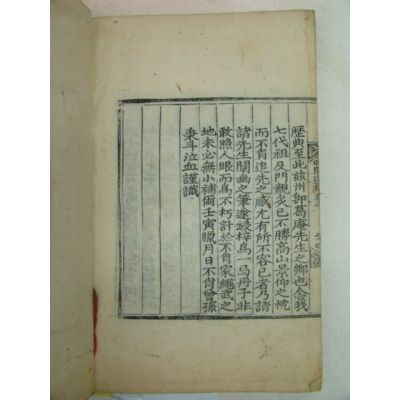 歷典至此玆州卽葛庵先生之鄕也念我
七代祖及門親炙已不勝高山景仰之忱
而不肖追先之感尤有所不容已者乃請
諸先生闡幽之筆遂繡梓爲一冊子非
敢照人眼而爲不朽計並不肖家繩武之
地未必無小補爾壬寅臘月日不肖曾孫
秉斗泣血謹識